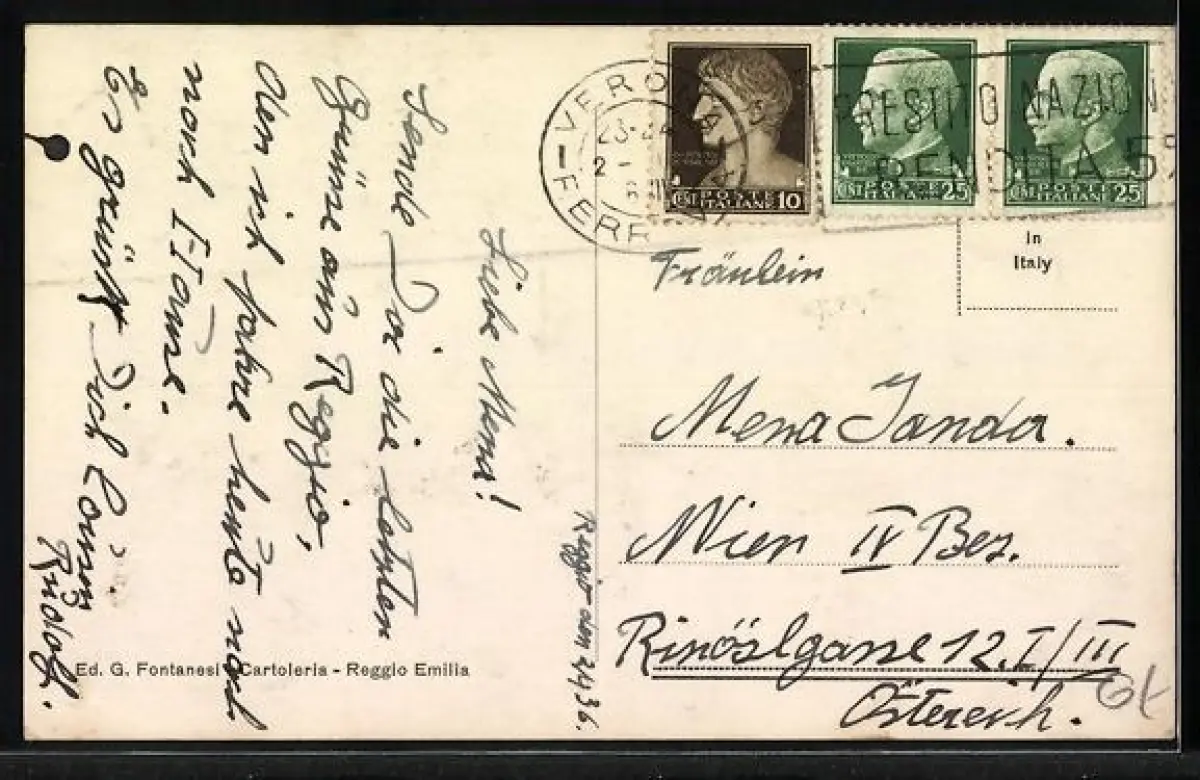 Reggio den 2/4 36.
Liebe Mena!
Sende Dir die letzten
Grüße aus Reggio,
den ich fahre heute noch
nach Hause.
Es grüßt Dich
Rudolf.
Ed. G. Fontanesi Cartoleria - Reggio Emilia
VERO
23-24
2 -
FERR
POSTE ITALIANE
CENT 10
POSTE ITALIANE
CENT 25
POSTE ITALIANE
CENT 25
PRESTITO NAZION
RENDITA 5
In
Italy
Fräulein
Mena Janda.
Wien IV Bez.
Rinöslgasse 12. I/III
Österreich.